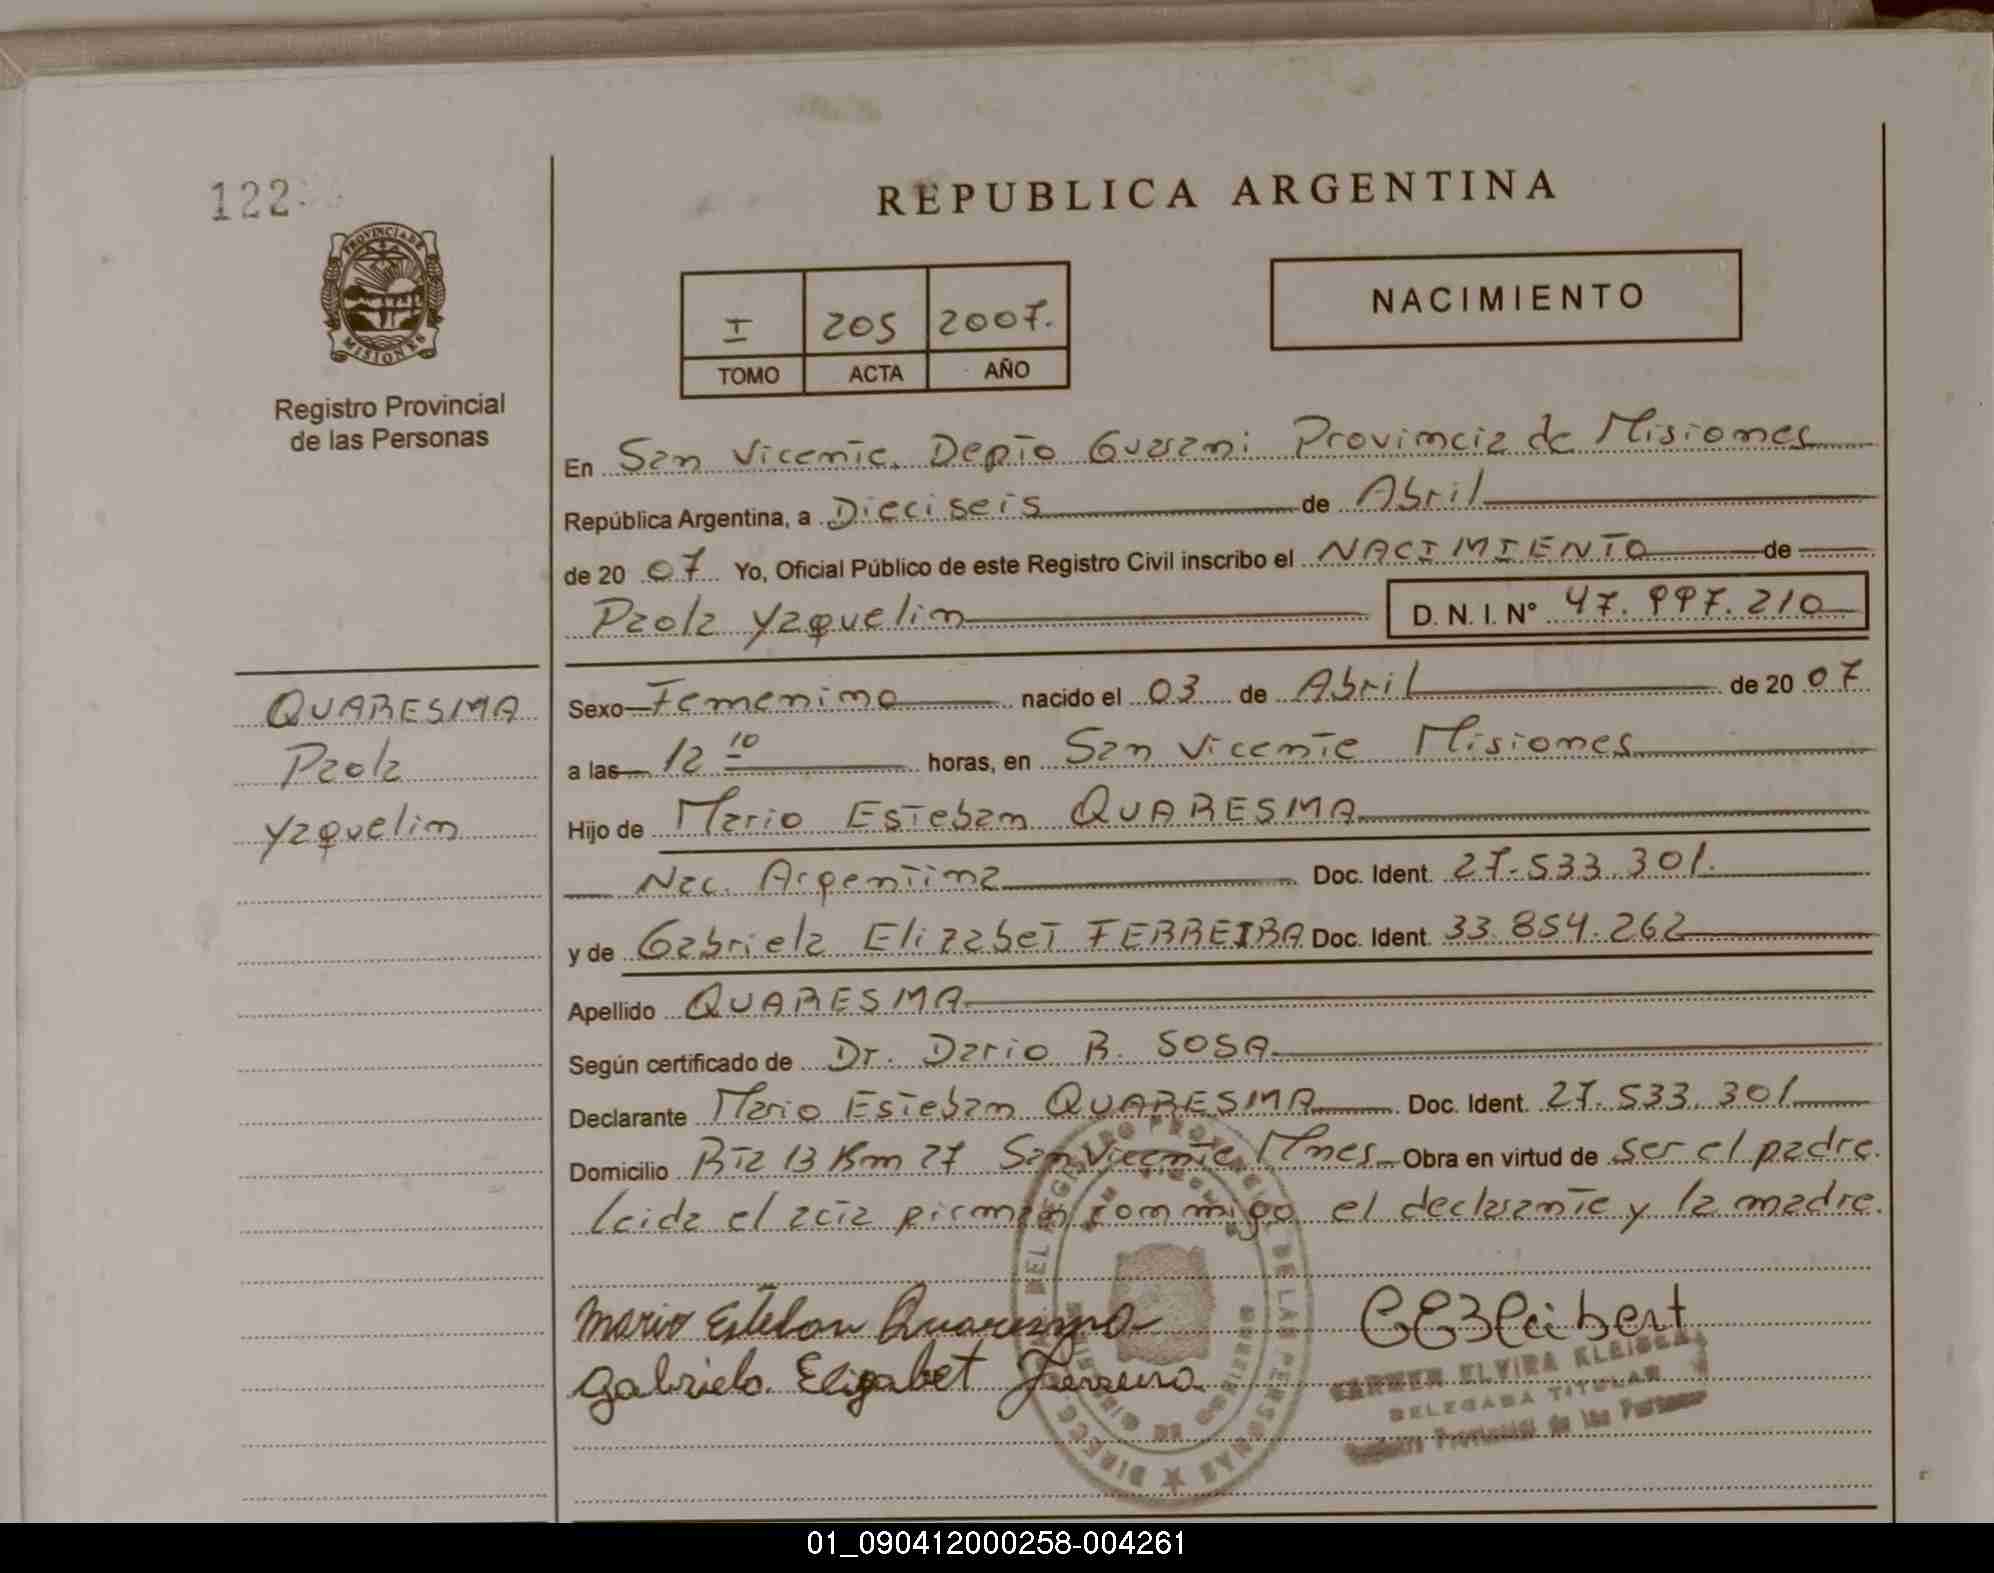 122
PROVINCIA DE
MISIONES
Registro Provincial
de las Personas
REPUBLICA ARGENTINA
I 205 2007.
TOMO ACTA AÑO
NACIMIENTO
En San Vicente. Depto Guarani Provincia de Misiones
República Argentina, a Dieciseis de Abril
de 20 07 Yo, Oficial Público de este Registro Civil inscribo el NACIMIENTO de
Paola Yaquelin D. N. I. Nº 47.997.210
QUARESMA
Paola
Yaquelin
Sexo Femenino nacido el 03 de Abril de 20 07
a las 12 10 horas, en San Vicente Misiones
Hijo de Mario Esteban QUARESMA
Nac. Argentina Doc. Ident. 27.533.301.
y de Gabriela Elizabet FERREIRA Doc. Ident. 33.854.262
Apellido QUARESMA
Según certificado de Dr. Dario R. SOSA
Declarante Mario Esteban QUARESMA Doc. Ident. 27.533.301
Domicilio Rta 13 Km 27 San Vicente Mnes Obra en virtud de ser el padre.
leida el acta firman conmigo el declarante y la madre.
Mario Esteban Quaresma
Gabriela Elizabet Ferreira
CARMEN ELVIRA
DELEGADA TITULAR
Registro Provincial de las Personas
01_090412000258-004261